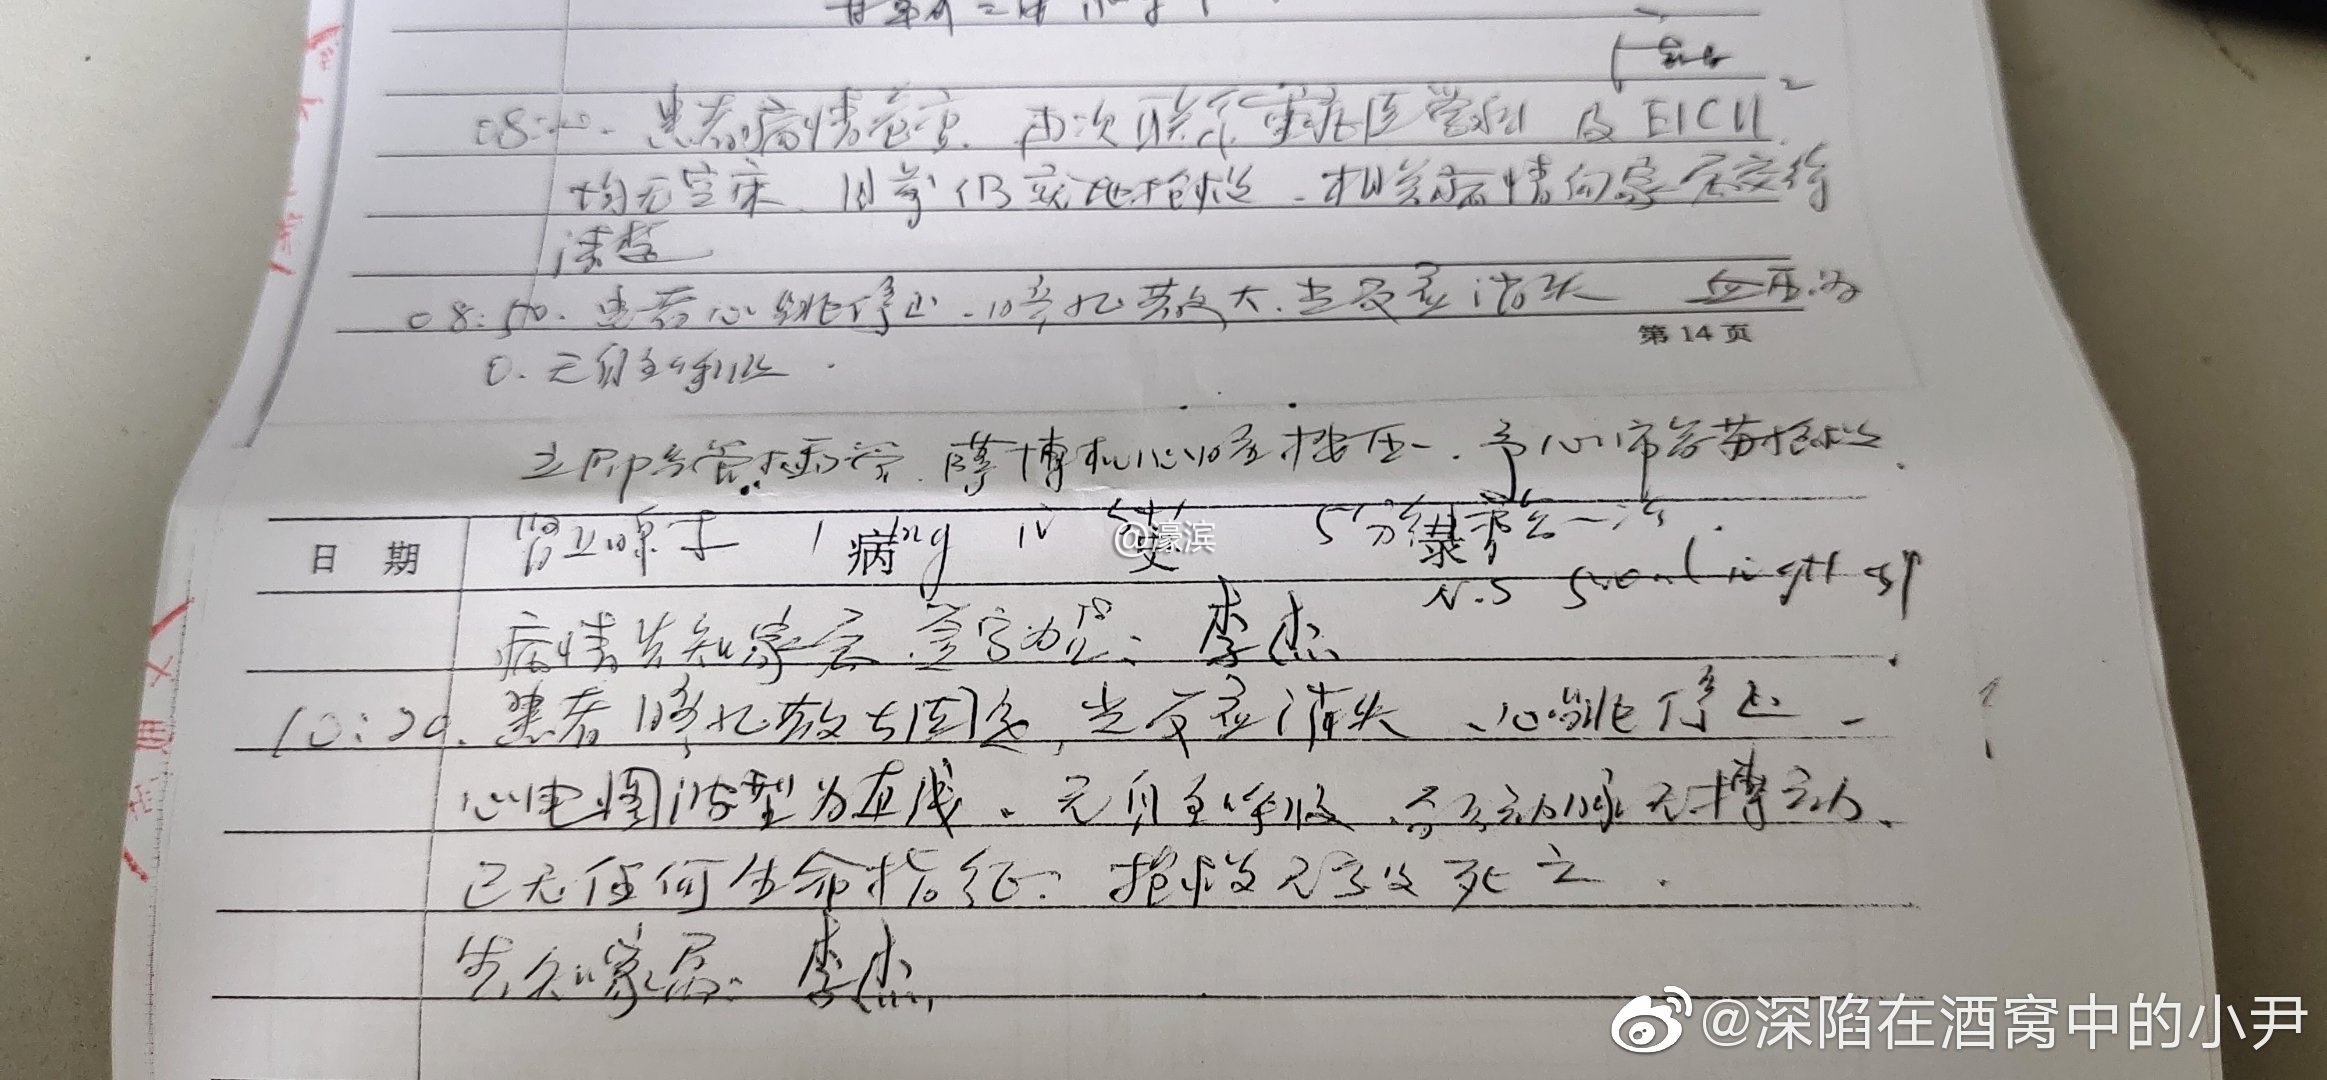 患者病情危重. 再次联系重症医学科及EICU
均无空床. 目前仍就地抢救. 相关病情向家属交待
清楚
08:50. 患者心跳停止. 瞳孔散大. 光反应消失 血压为
第 14 页
0. 无自主呼吸.
立即气管插管. 萨博机心脏按压. 予心肺复苏抢救.
肾上腺素 1mg iv 5分钟 一次.
日 期 病 录
@濠滨
N.S 500ml ivgtt
病情告知家属 签字为证: 李杰
10:20. 患者瞳孔散大固定, 光反应消失、心跳停止.
心电图波型为直线. 无自主呼吸. 大动脉无搏动.
已无任何生命指征. 抢救无效死亡.
告知家属: 李杰
@深陷在酒窝中的小尹